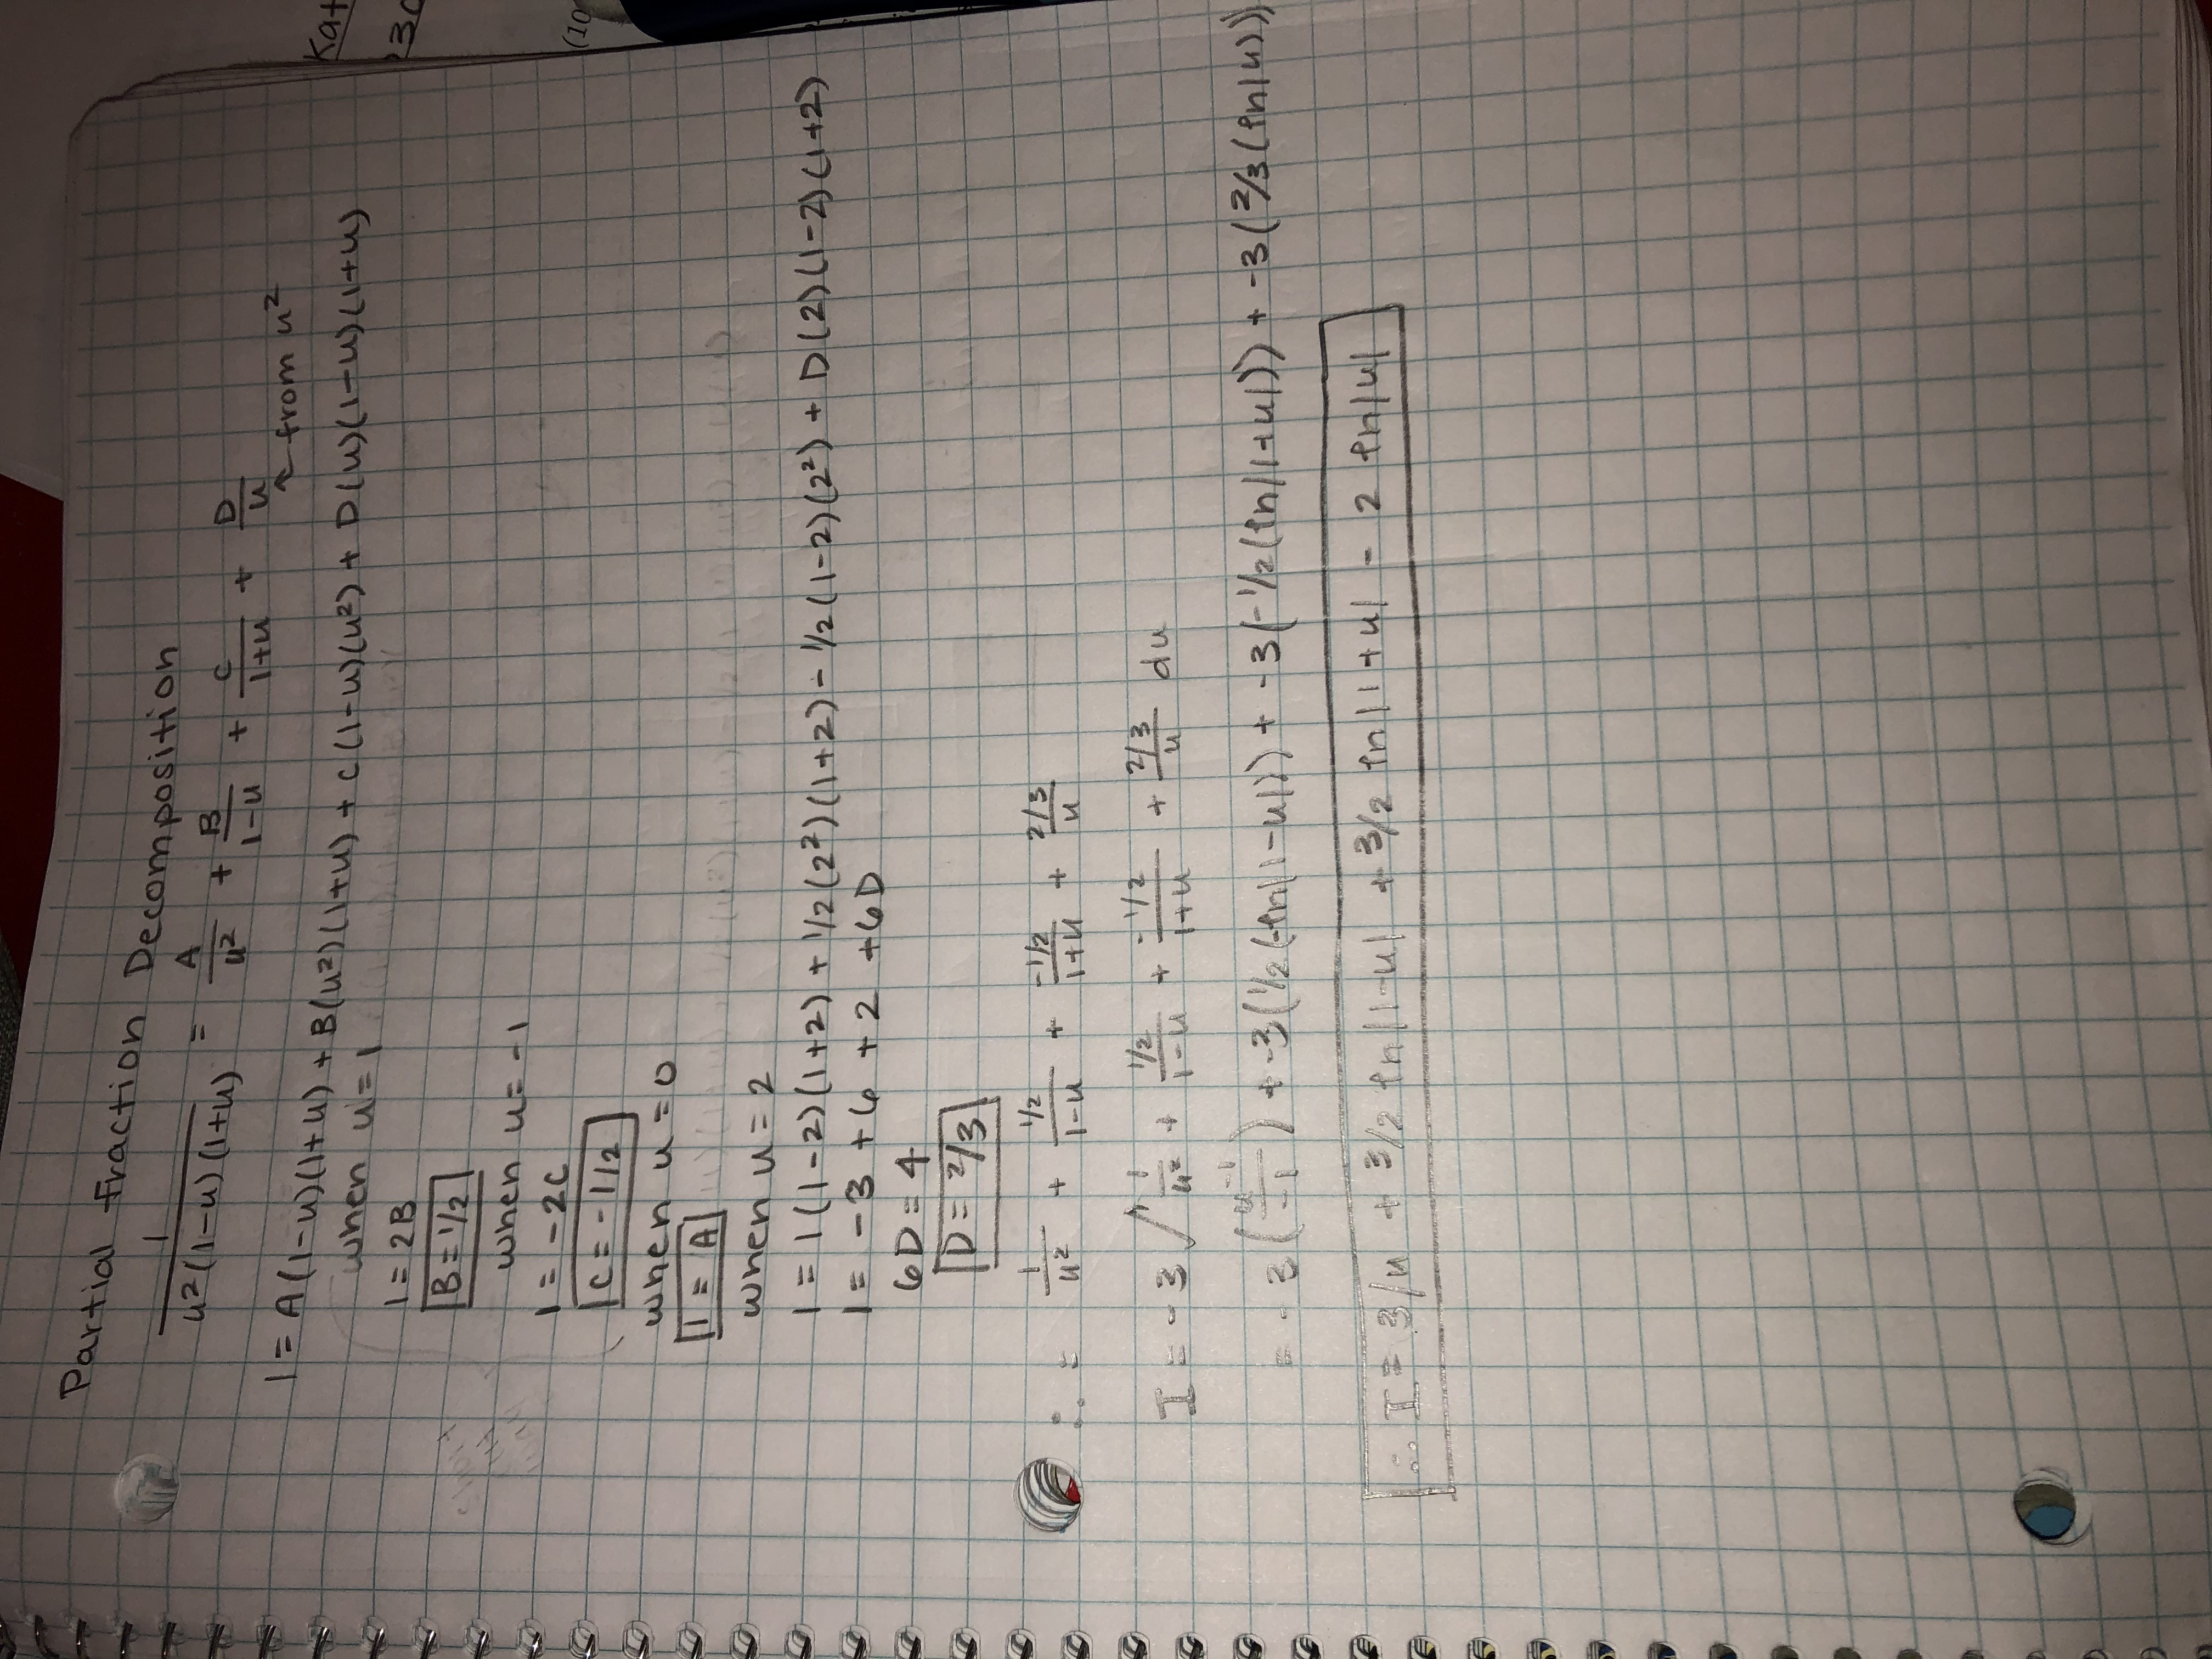 Kat
30
(10
Partial Fraction Decomposition
1/(u²(1-u)(1+u)) = A/u² + B/(1-u) + C/(1+u) + D/u ← from u²
1 = A(1-u)(1+u) + B(u²)(1+u) + C(1-u)(u²) + D(u)(1-u)(1+u)
when u=1
1 = 2B
B = 1/2
when u = -1
1 = -2C
C = -1/2
when u = 0
1 = A
when u = 2
1 = 1(1-2)(1+2) + 1/2(2²)(1+2) - 1/2(1-2)(2²) + D(2)(1-2)(1+2)
1 = -3 + 6 + 2 + 6D
6D = 4
D = 2/3
∴ = 1/u² + (1/2)/(1-u) + (-1/2)/(1+u) + (2/3)/u
I = -3 ∫ 1/u² + (1/2)/(1-u) + (-1/2)/(1+u) + (2/3)/u du
= -3(u⁻¹/-1) + -3(1/2(-ln|1-u|)) + -3(-1/2(ln|1+u|)) + -3(2/3(ln|u))
∴ I = 3/u + 3/2 ln|1-u| + 3/2 ln|1+u| - 2 ln|u|